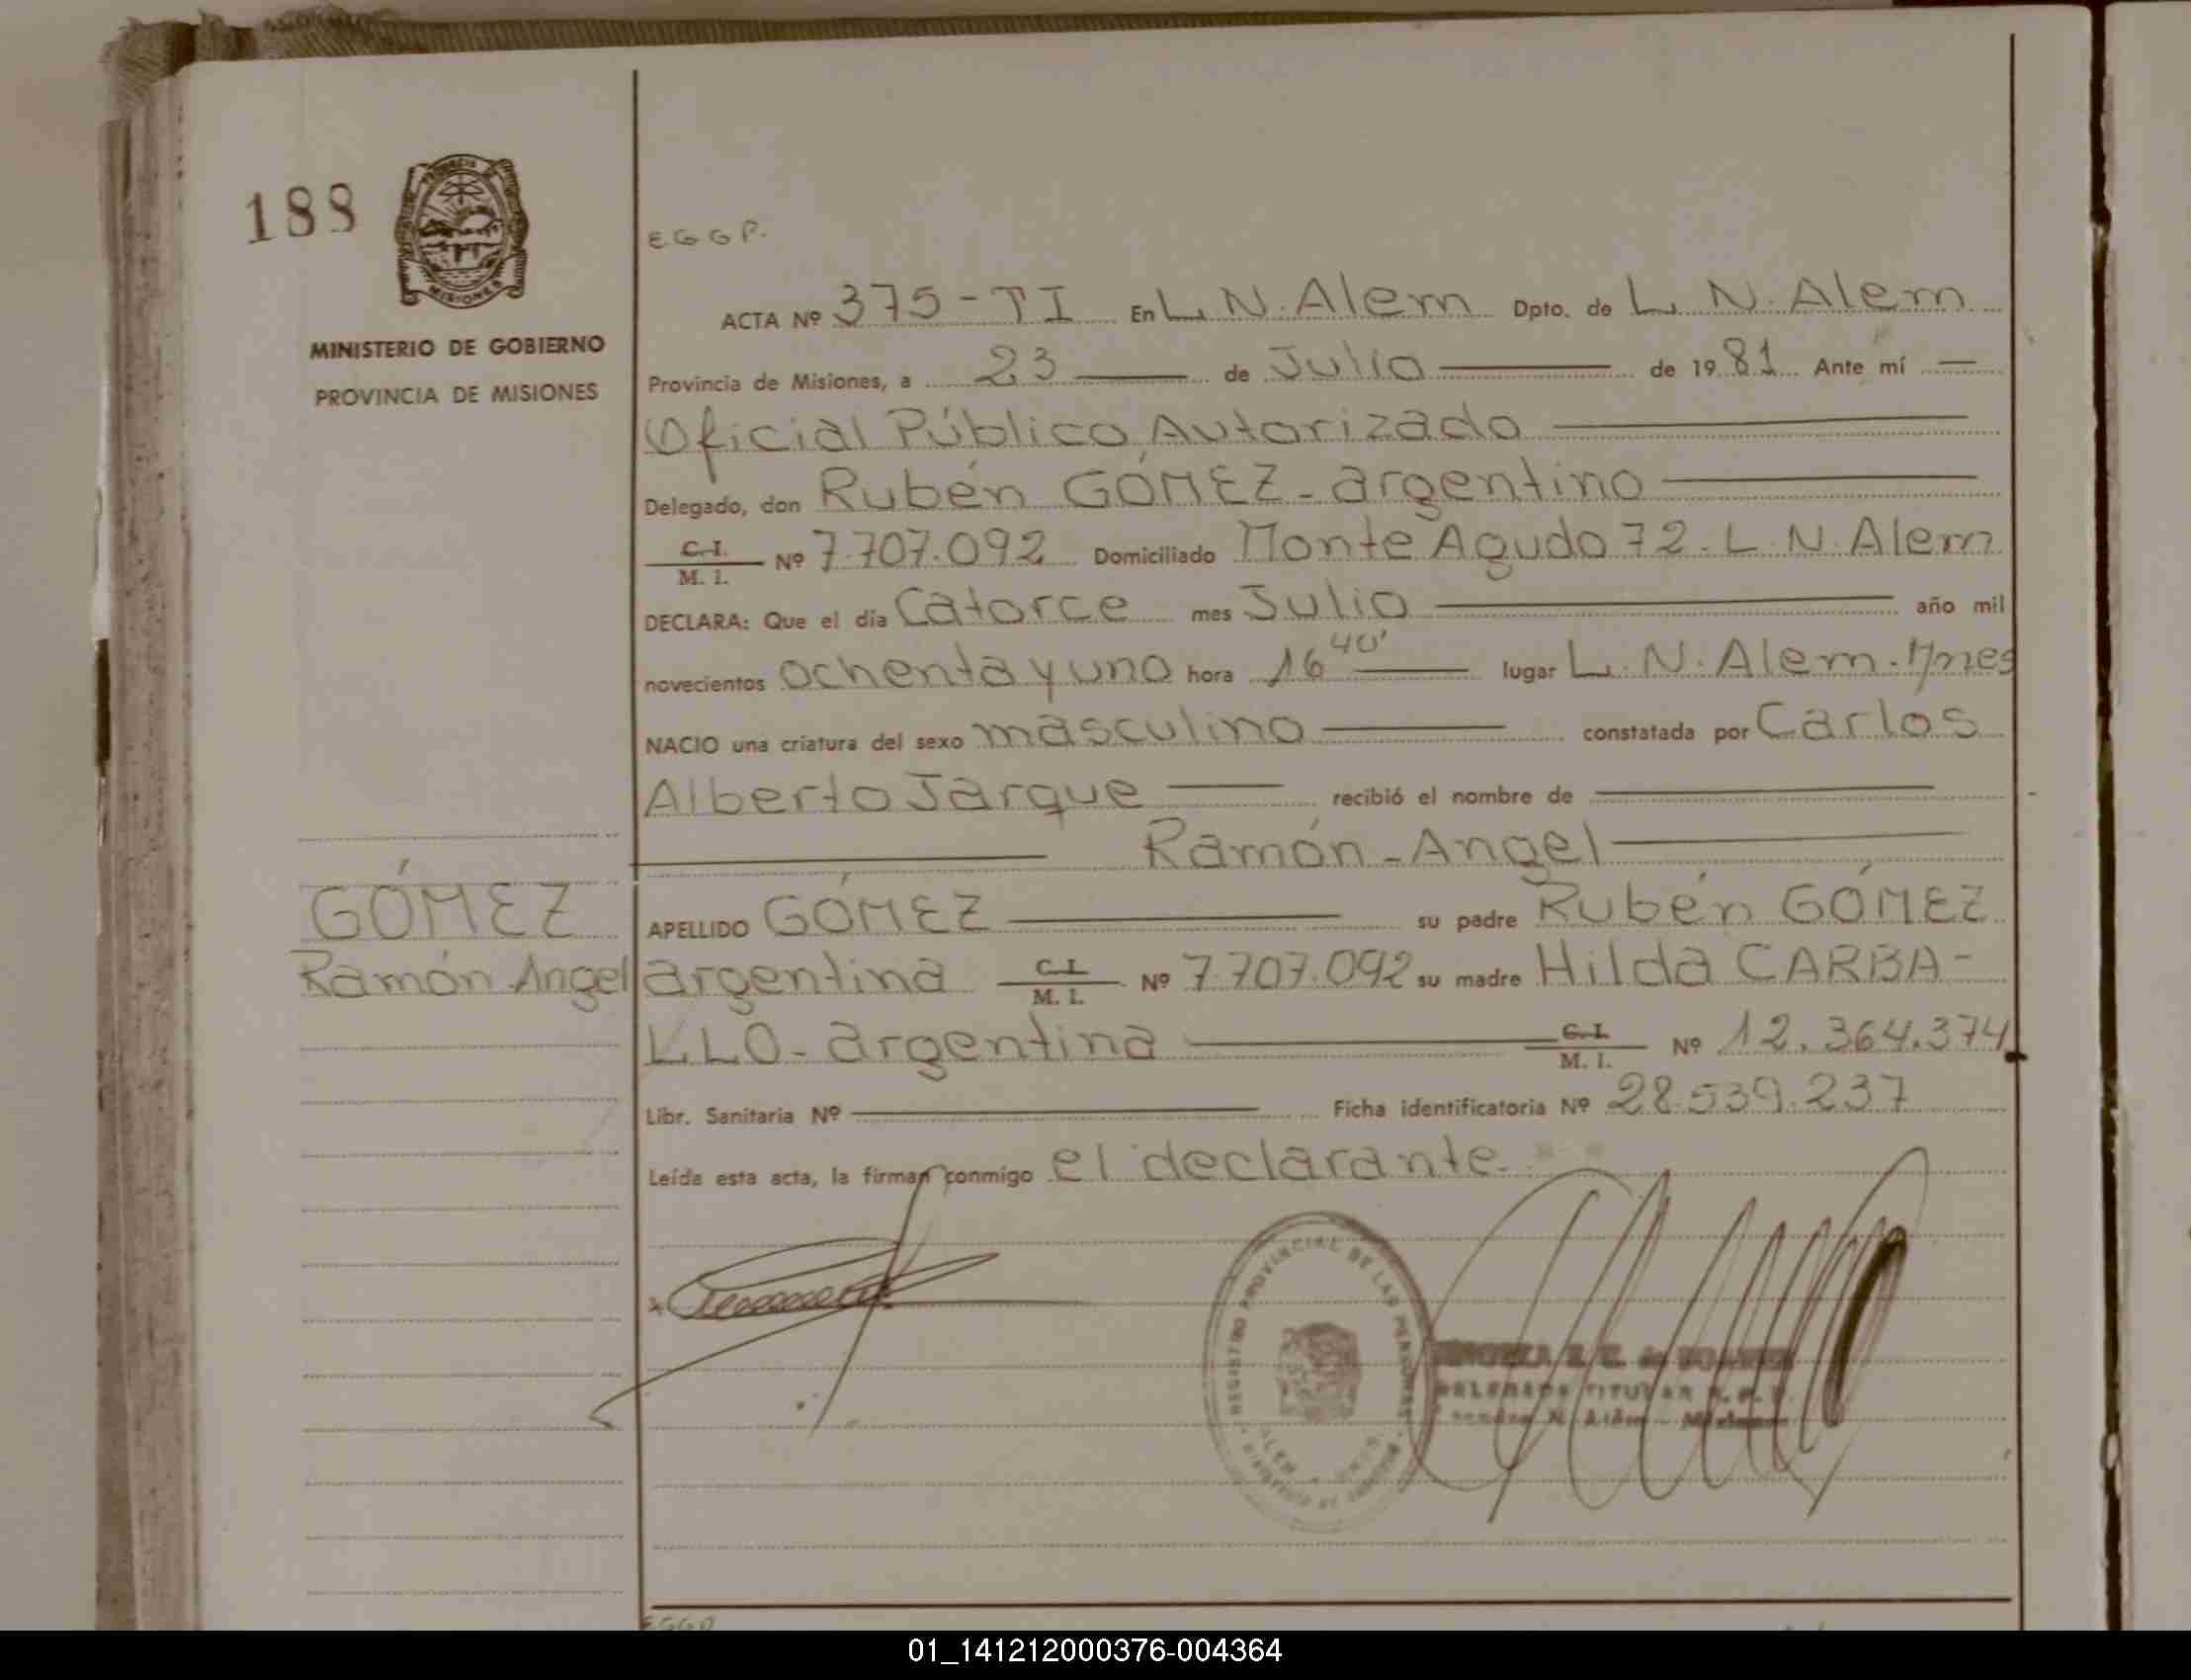 188
MISIONES
MINISTERIO DE GOBIERNO
PROVINCIA DE MISIONES
E.G.G.P.
ACTA Nº 375-TI En L. N. Alem Dpto. de L. N. Alem
Provincia de Misiones, a 23 de Julio de 1981 Ante mí
Oficial Público Autorizado
Delegado, don Rubén GÓMEZ - argentino
C.I. M. I. Nº 7.707.092 Domiciliado Monte Agudo 72. L. N. Alem
DECLARA: Que el día Catorce mes Julio año mil
novecientos ochenta y uno hora 16 40' lugar L. N. Alem. Mnes
NACIO una criatura del sexo masculino constatada por Carlos
Alberto Jarque recibió el nombre de
Ramón - Angel
GÓMEZ
Ramón Angel
APELLIDO GÓMEZ su padre Rubén GÓMEZ
argentina C.I. M. I. Nº 7.707.092 su madre Hilda CARBA-
LLO - argentina C.I. M. I. Nº 12.364.374
Libr. Sanitaria Nº Ficha identificatoria Nº 28.539.237
Leída esta acta, la firman conmigo el declarante.
REGISTRO PROVINCIAL DE LAS PERSONAS
ALEM
DELEGADA TITULAR
N. Alem - Misiones
01_141212000376-004364